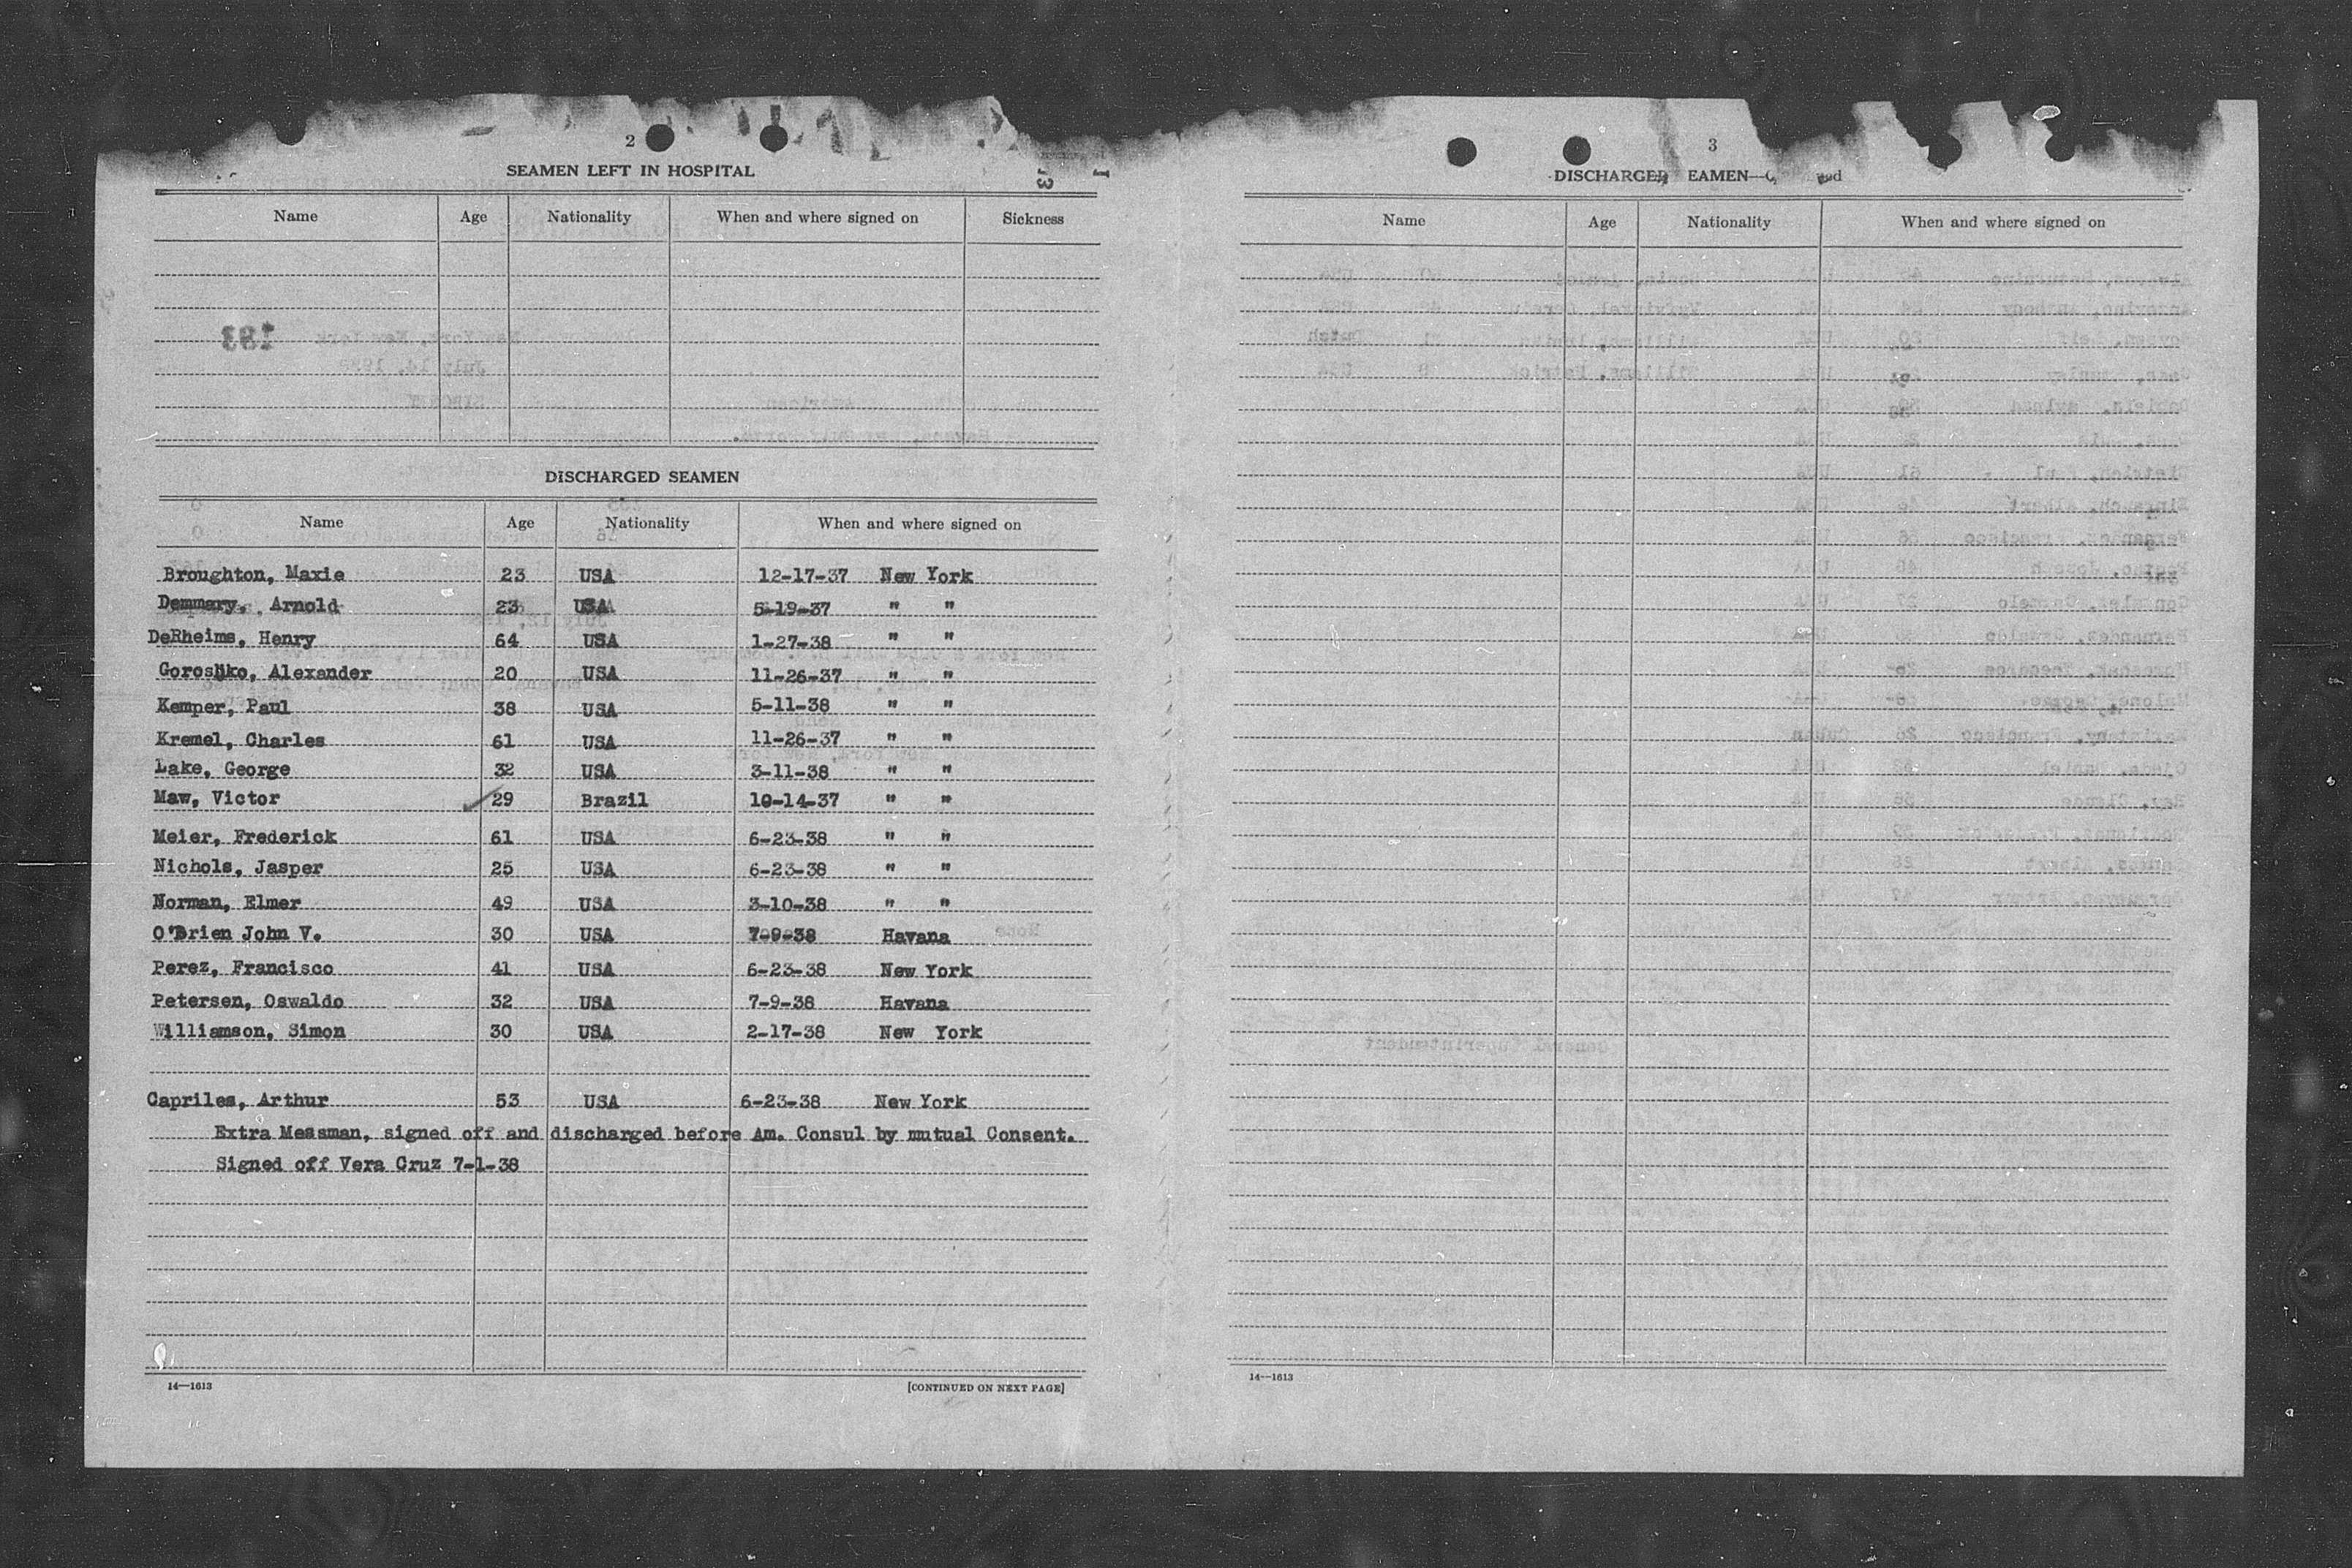 2
SEAMEN LEFT IN HOSPITAL
Name Age Nationality When and where signed on Sickness
DISCHARGED SEAMEN
Name Age Nationality When and where signed on
Broughton, Maxie 23 USA 12-17-37 New York
Demmary, Arnold 23 USA 5-19-37 " "
DeRheims, Henry 64 USA 1-27-38 " "
Goroshko, Alexander 20 USA 11-26-37 " "
Kemper, Paul 38 USA 5-11-38 " "
Kremel, Charles 61 USA 11-26-37 " "
Lake, George 32 USA 3-11-38 " "
Maw, Victor 29 Brazil 10-14-37 " "
Meier, Frederick 61 USA 6-23-38 " "
Nichols, Jasper 25 USA 6-23-38 " "
Norman, Elmer 49 USA 3-10-38 " "
O'Brien John V. 30 USA 7-9-38 Havana
Perez, Francisco 41 USA 6-23-38 New York
Petersen, Oswaldo 32 USA 7-9-38 Havana
Williamson, Simon 30 USA 2-17-38 New York
Capriles, Arthur 53 USA 6-23-38 New York
Extra Messman, signed off and discharged before Am. Consul by mutual Consent.
Signed off Vera Cruz 7-1-38
14—1613 [CONTINUED ON NEXT PAGE]
3
DISCHARGED EAMEN—
Name Age Nationality When and where signed on
14—1613